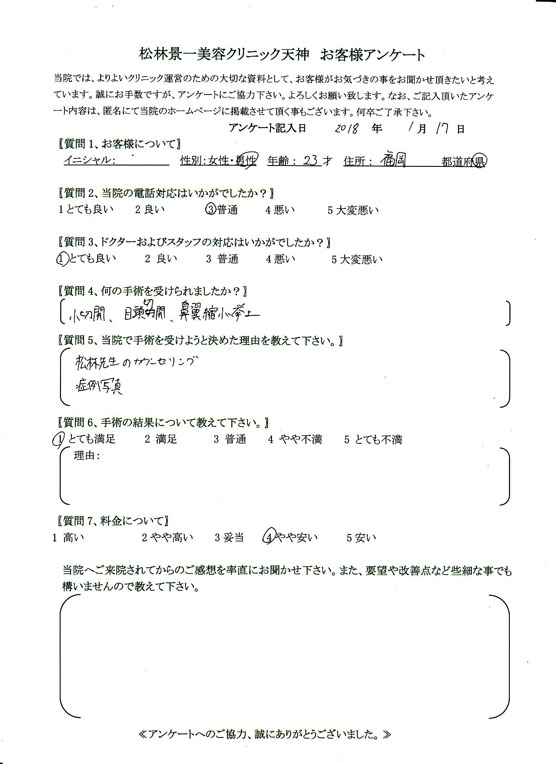 松林景一美容クリニック天神　お客様アンケート
当院では、よりよいクリニック運営のための大切な資料として、お客様がお気づきの事をお聞かせ頂きたいと考え
ています。誠にお手数ですが、アンケートにご協力下さい。よろしくお願い致します。なお、ご記入頂いたアンケ
ート内容は、匿名にて当院のホームページに掲載させて頂く事もございます。何卒ご了承下さい。
アンケート記入日　2018　年　1月　17　日
〖質問１、お客様について〗
イニシャル：　性別：女性・男性　年齢：23才　住所：福岡　都道府県
〖質問２、当院の電話対応はいかがでしたか？〗
１とても良い　２良い　③普通　４悪い　５大変悪い
〖質問３、ドクターおよびスタッフの対応はいかがでしたか？〗
①とても良い　２ 良い　３ 普通　４悪い　５大変悪い
〖質問４、何の手術を受けられましたか？〗
小切開、目頭切開、鼻翼縮小挙上
〖質問５、当院で手術を受けようと決めた理由を教えて下さい。〗
松林先生のカウンセリング
症例写真
〖質問６、手術の結果について教えて下さい。〗
①とても満足　２ 満足　３ 普通　４ やや不満　５ とても不満
理由：
〖質問７、料金について〗
１ 高い　２やや高い　３妥当　④やや安い　５安い
当院へご来院されてからのご感想を率直にお聞かせ下さい。また、要望や改善点など些細な事でも
構いませんので教えて下さい。
≪アンケートへのご協力、誠にありがとうございました。≫